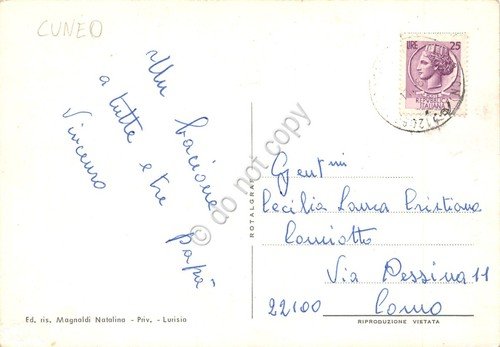 CUNEO
Un bacione
a tutte e tre
Papà
Vincenzo
LIRE 25
REPUBBLICA
ITALIANA
Gent.mi
Cecilia Laura Cristiana
Via Messina 11
22100 Como
ROTALGRAF
Ed. ris. Magnoldi Natalino - Priv. - Lurisia
RIPRODUZIONE VIETATA
do not copy